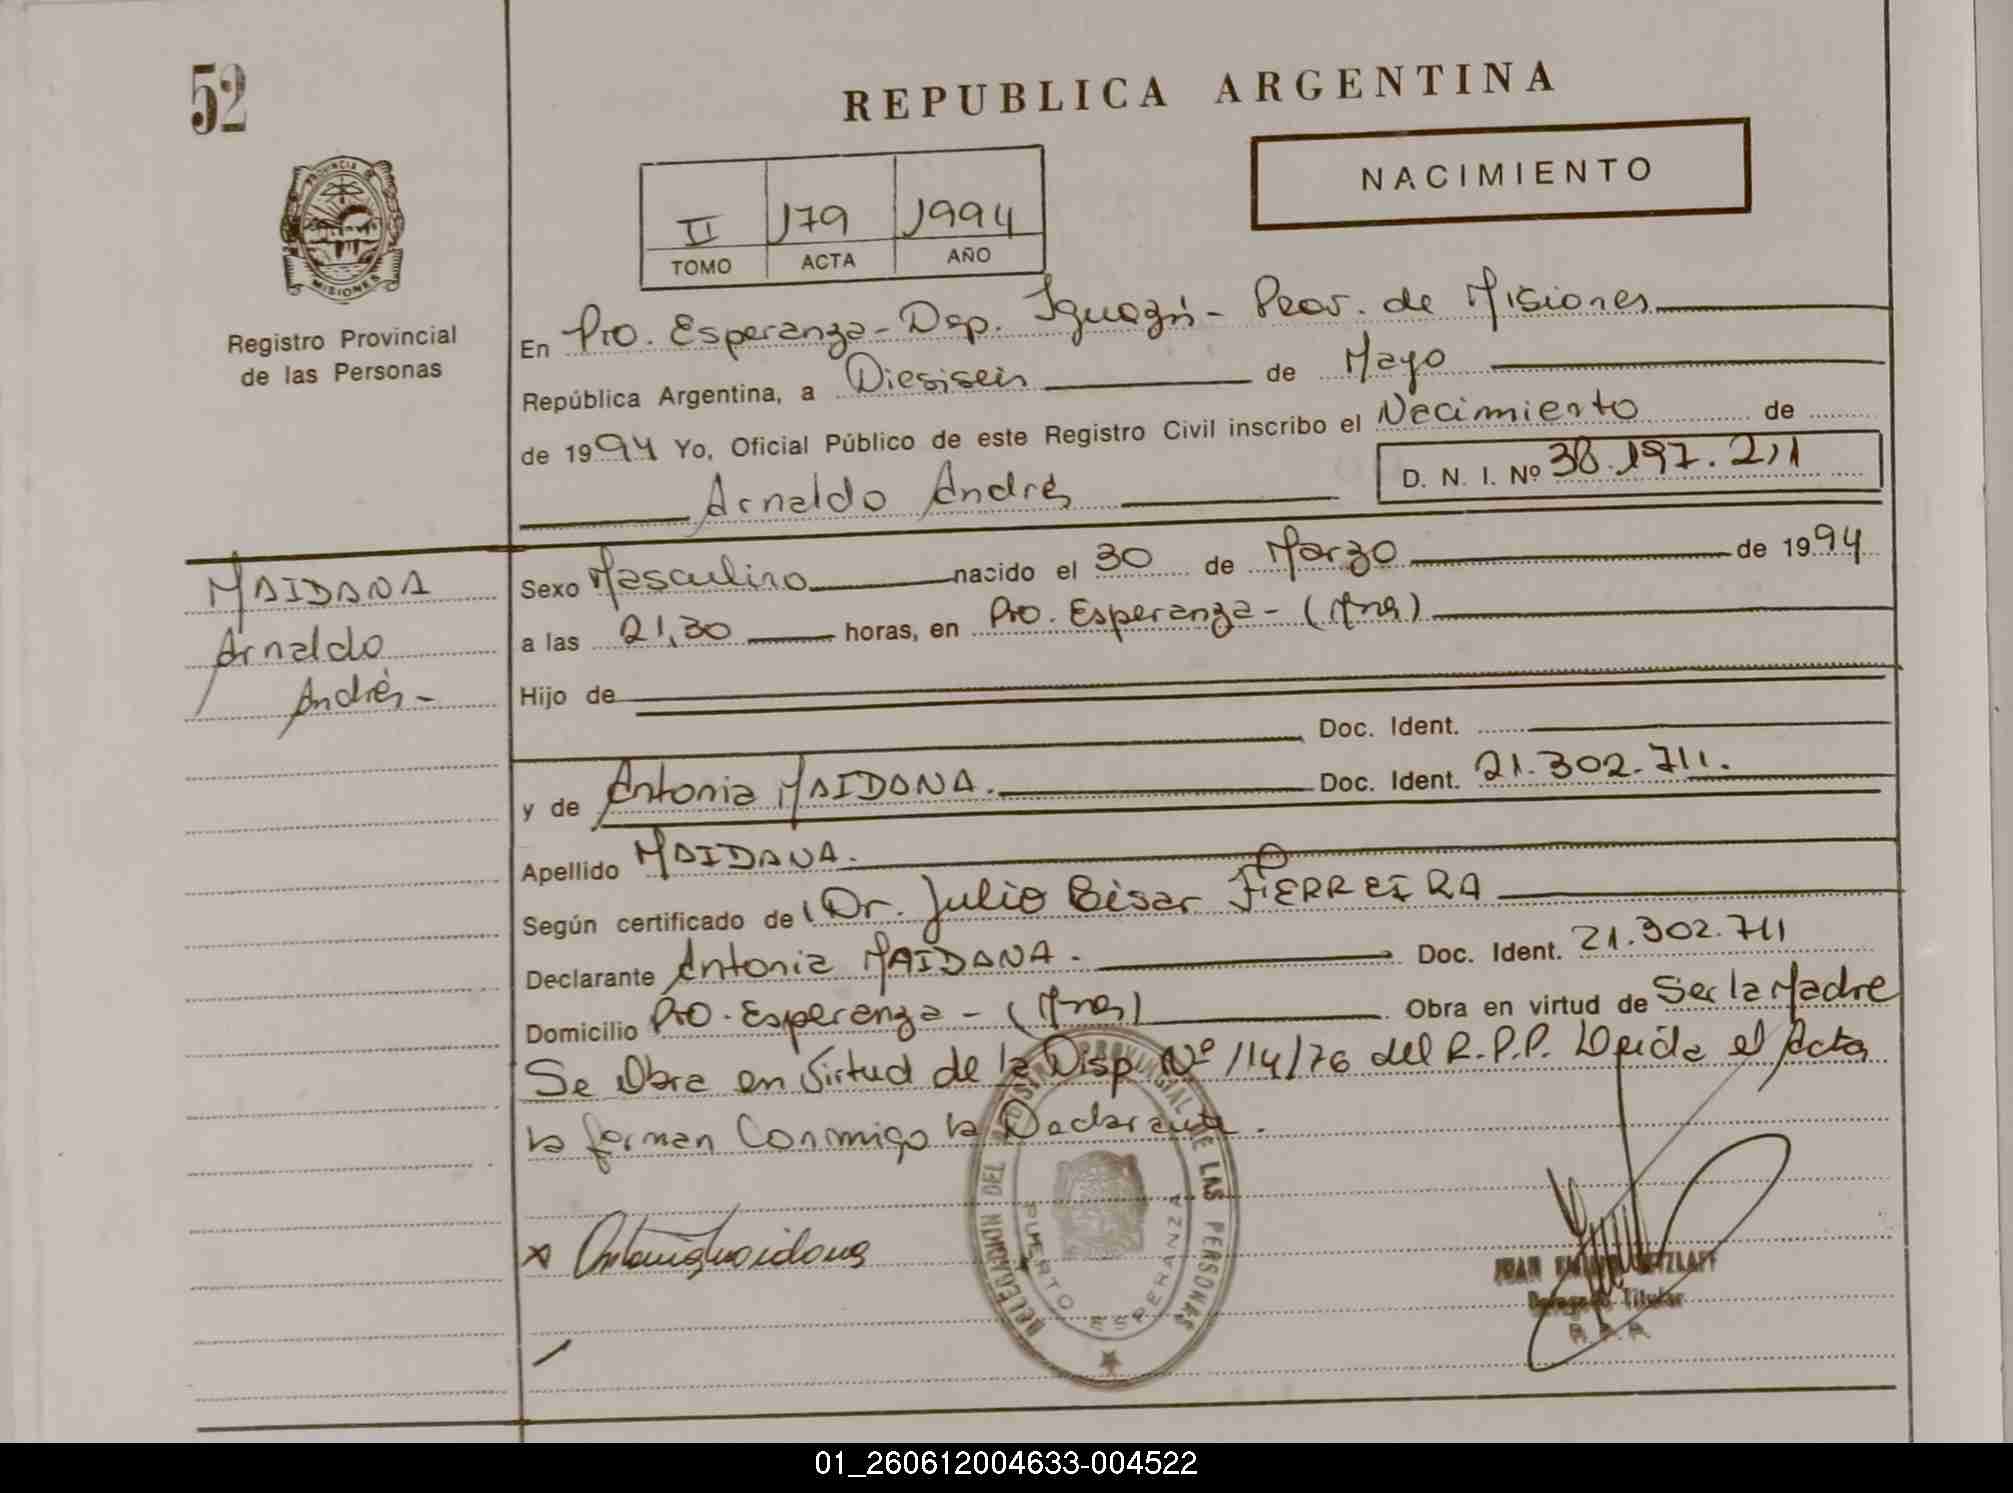 52
REPUBLICA ARGENTINA
NACIMIENTO
II 179 1994
TOMO ACTA AÑO
PROVINCIA DE MISIONES
Registro Provincial
de las Personas
En Pto. Esperanza - Dep. Iguazú - Prov. de Misiones
República Argentina, a Diesiseis de Mayo
de 1994 Yo, Oficial Público de este Registro Civil inscribo el Nacimiento de
Arnaldo Andrés D. N. I. Nº 38.197.211
MAIDANA
Arnaldo
Andrés -
Sexo Masculino nacido el 30 de Marzo de 1994
a las 21,30 horas, en Pto. Esperanza - (Mnes)
Hijo de
Doc. Ident.
y de Antonia MAIDANA. Doc. Ident. 21.302.711.
Apellido MAIDANA.
Según certificado de Dr. Julio Cèsar FERREIRA
Declarante Antonia MAIDANA. Doc. Ident. 21.302.711
Domicilio Pto. Esperanza - (Mnes) Obra en virtud de Ser la Madre
Se Obra en Virtud de la Disp Nº 114/76 del R.P.P. Leida el Acta
la forman Conmigo la Declarante.
x Antonia Maidana
DELEGACION DEL REGISTRO PROVINCIAL DE LAS PERSONAS
PUERTO ESPERANZA
JUAN
Delegado Titular
01_260612004633-004522